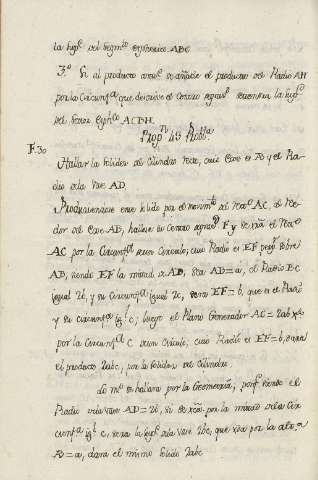 la sup.e del segm.to espherico ABC
3.º Si al producto antec.te se añadiere el producto del Radio AH
por la Circunf.a que descrive el Centro grav.s sera una la sup.e
del Sector Esph.co ACBH.
Prop.n 49 Probl.a
F. 30 Hallar la solidez del Cilindro recto, cuio Exe es A y el Ra-
dio de la Vase AD.
Producuiendose este solido por el movim.to del rect.o AC, al rede-
dor del Exe AB, hallese su Centro grav.s F y se x.rá el rect.o
AC por la Circunf.a de un Circulo, cuio Radio es EF perp.r sobre
AD, siendo EF la mitad de AD, sea AD=a, el Radio BC
igual 2b, y su Circunf.a igual 2c, sera EF=b, que es el Radio
y su circunf.a ig.l c; luego el Plano Generador AC=2ab x.do
por la Circunf.a c de un Circulo, cuio Radio es EF=b, dara
el producto 2abc, por la solidez del Cilindro
Lo m.o se hallara por la Geometria, porq.e siendo el
Radio de la Vase AD=2b, si se x.ca por la mitad de la Cir
cunf.a ig.l c, sera la sup.e de la Vase 2bc, que x.da por la alt.a
A=a, dara el mismo solido 2abc